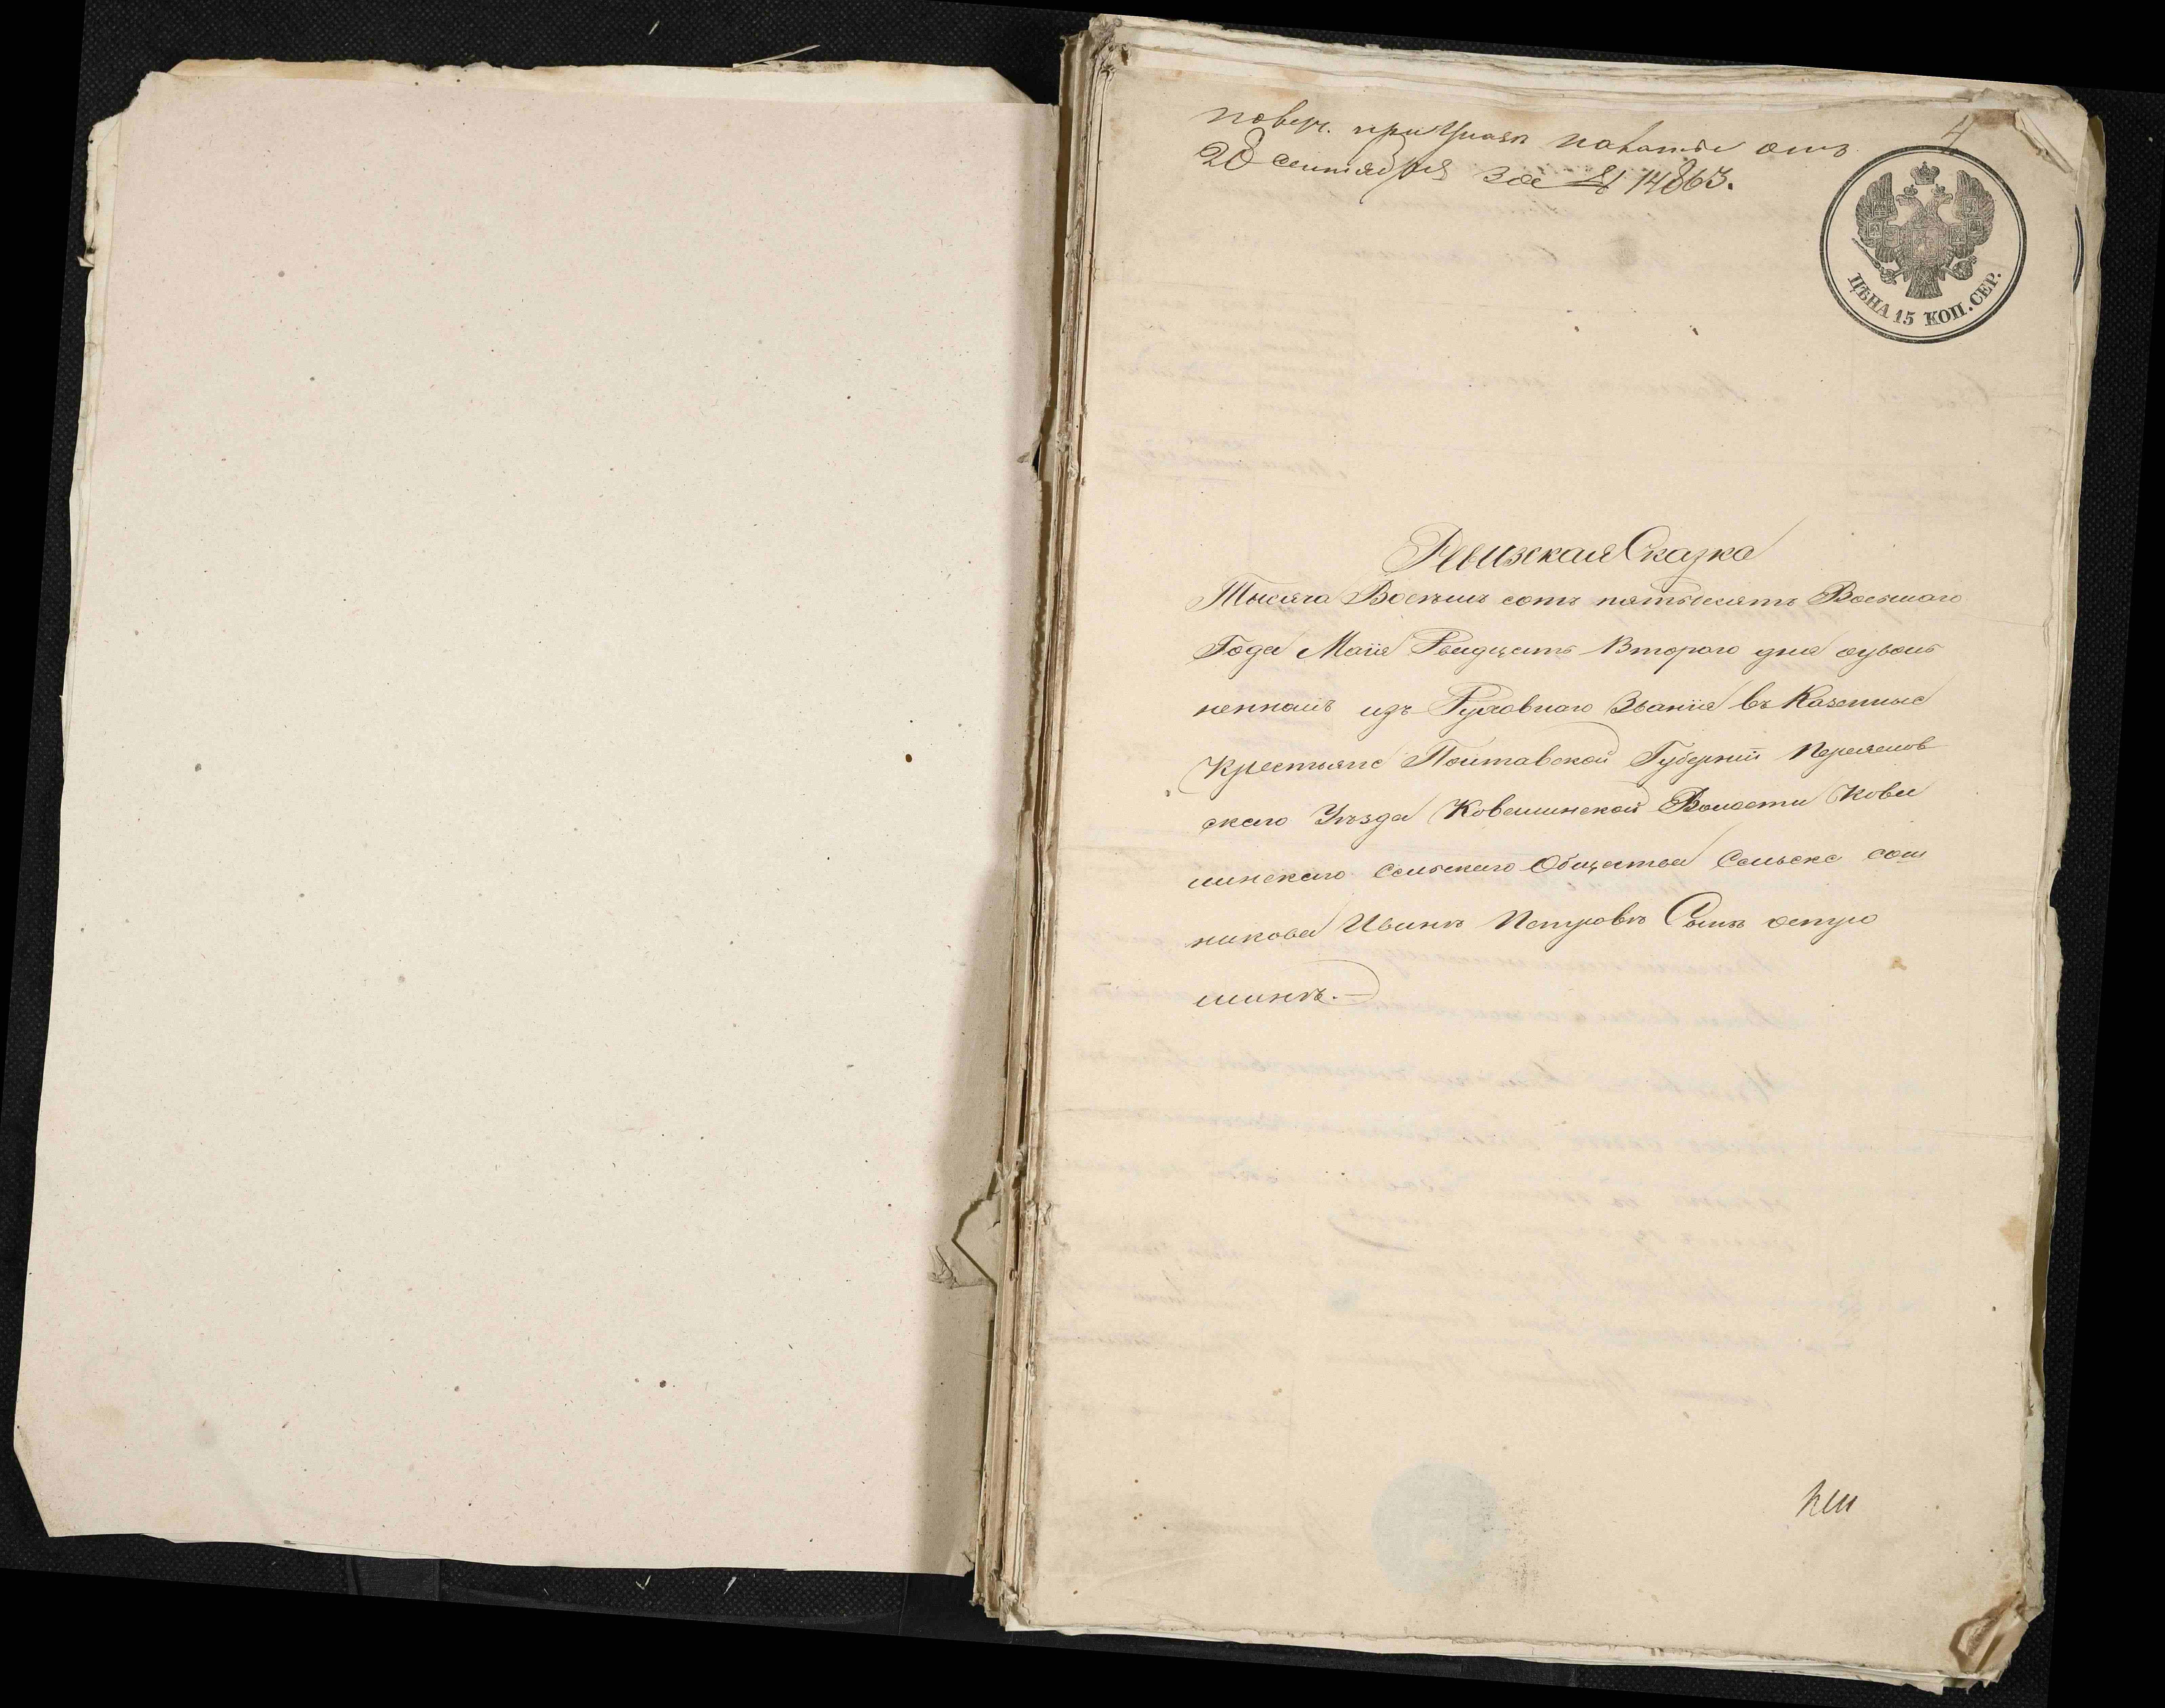 4
повер. при палаты отъ
28 сентября за № 14863.
ЦѢНА 15 КОП. СЕР.
Ревизская Сказка
Тысяча Восемь сотъ пятьдесятъ Восьмаго
Года Маія Двадцать Втораго дня оуволь
неннаго изъ Духовнаго Званія въ Казенные
Крестьяне Полтавской Губерніи Переяслов
скаго Уѣзда Ковалинской Волости Кова
линскаго Сельскаго Общества
Иванъ Петровъ Сынъ